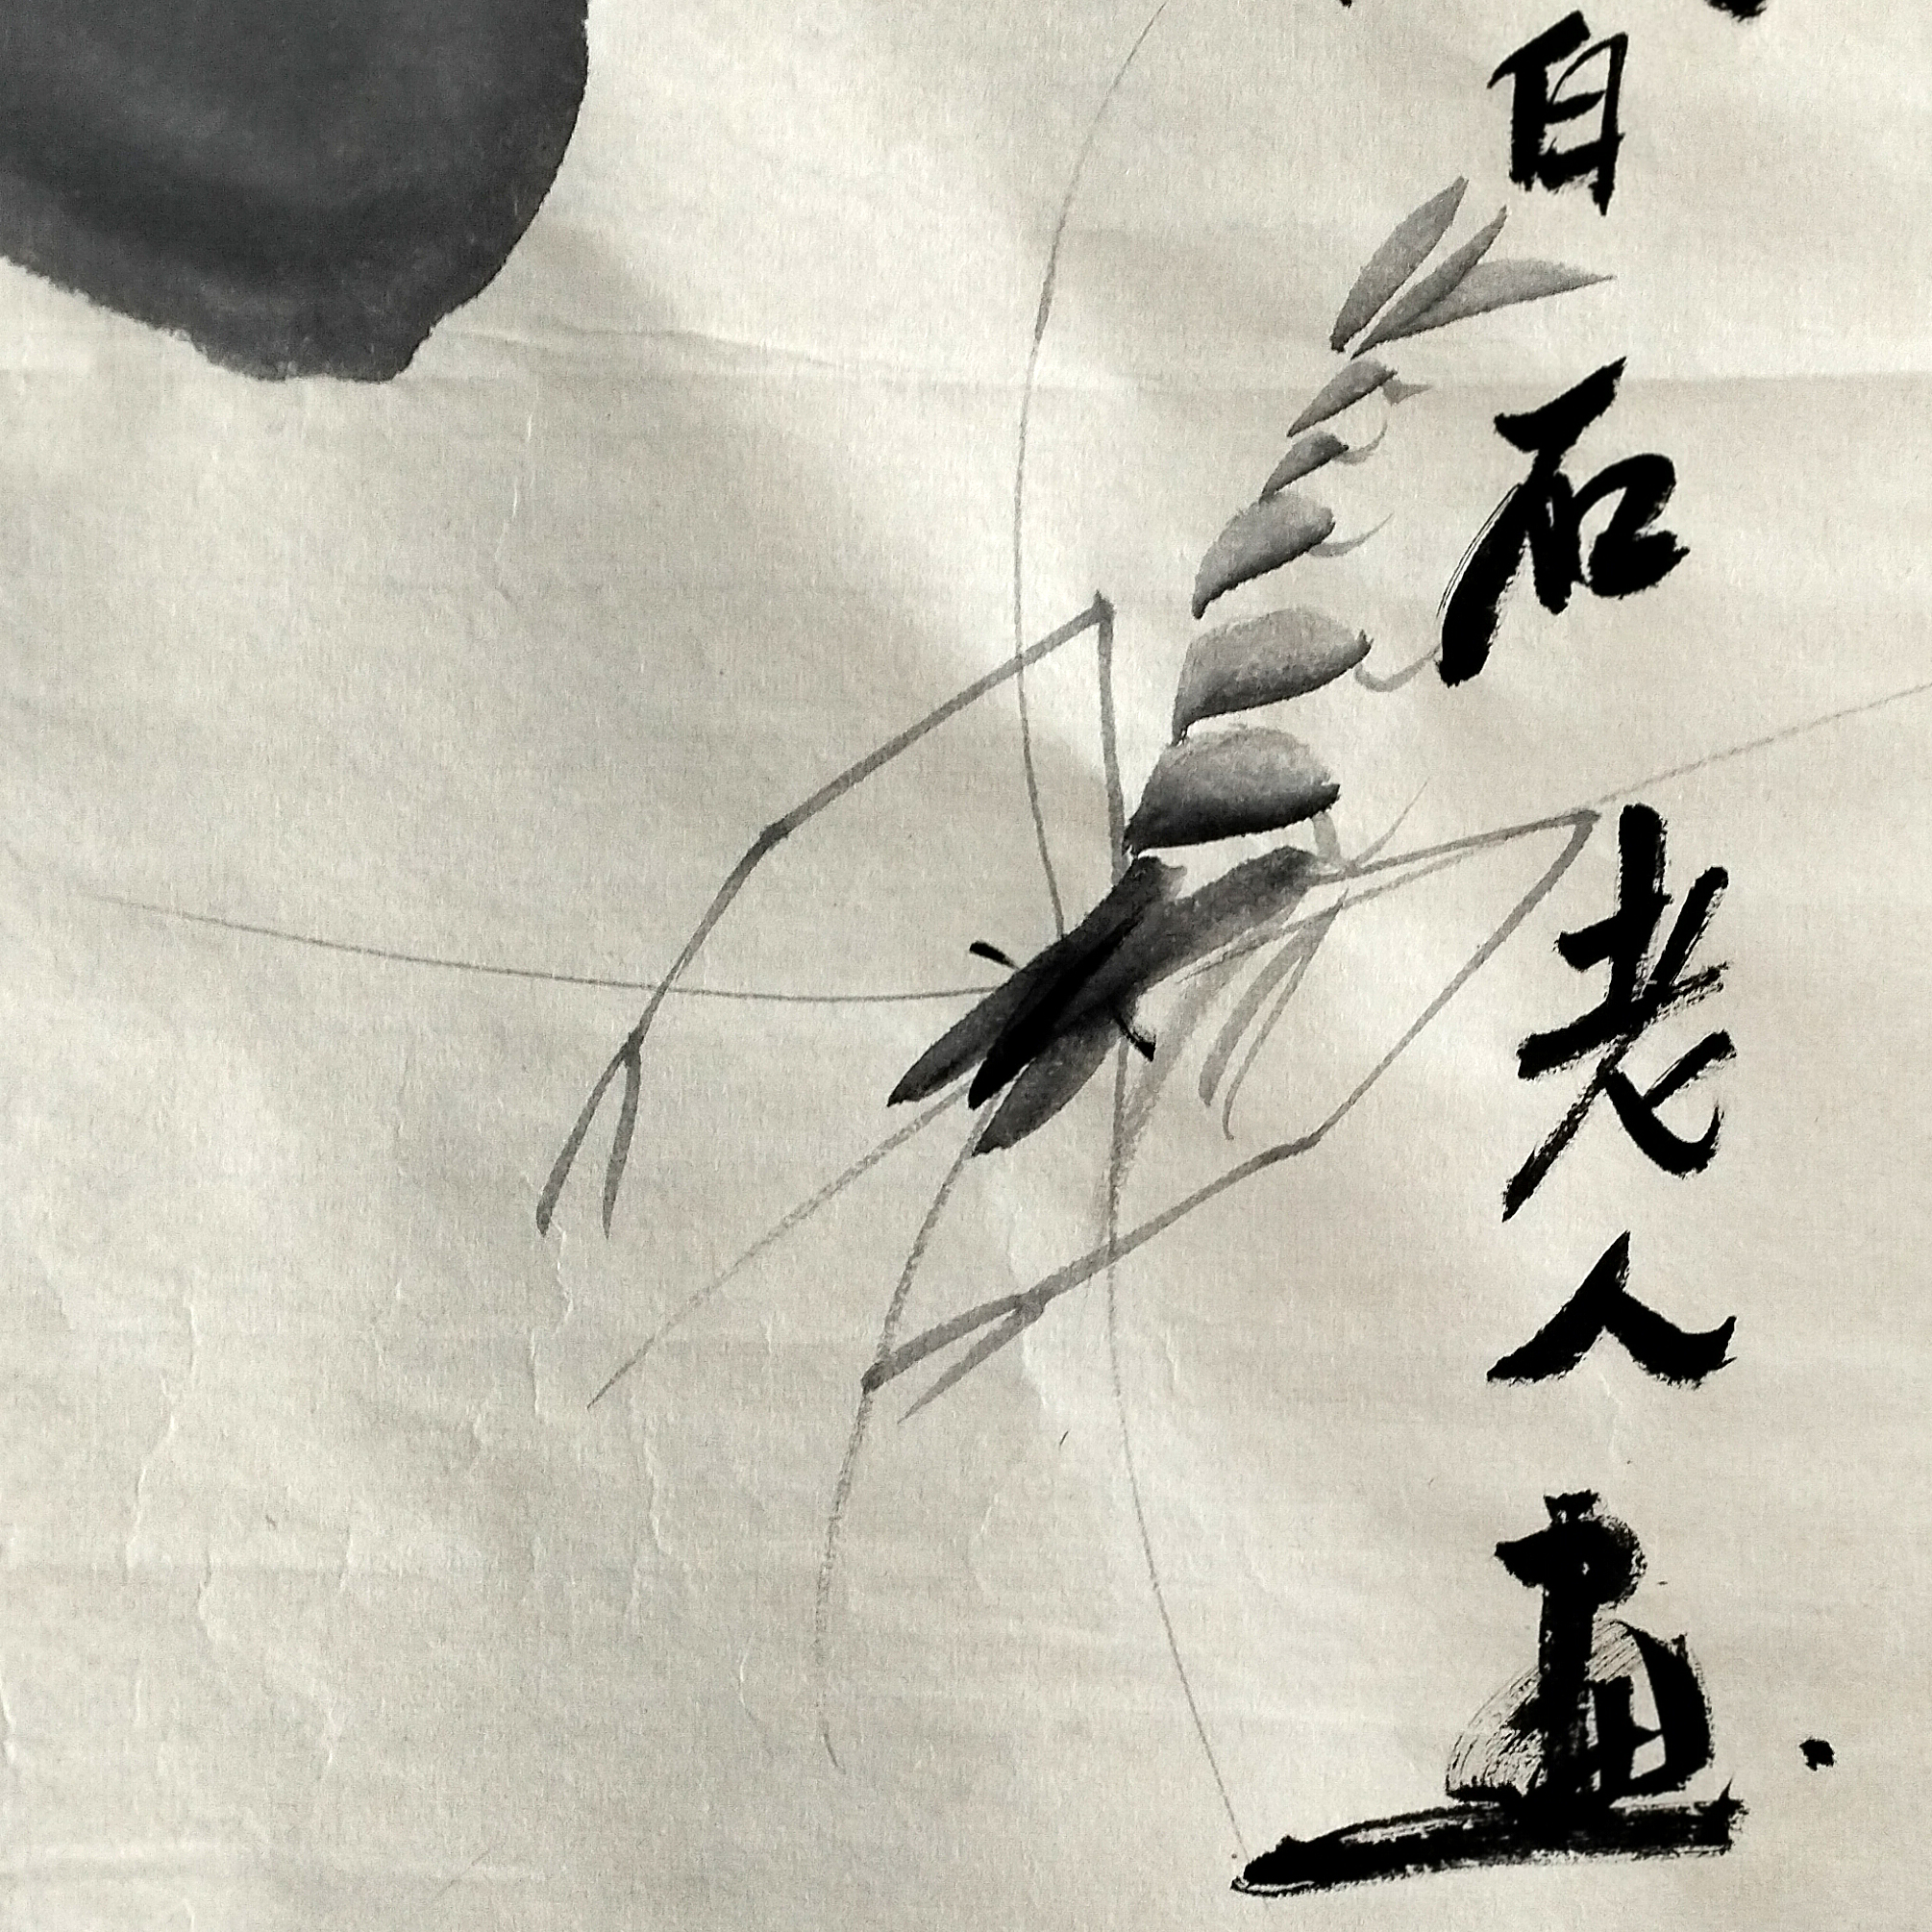 白石老人画